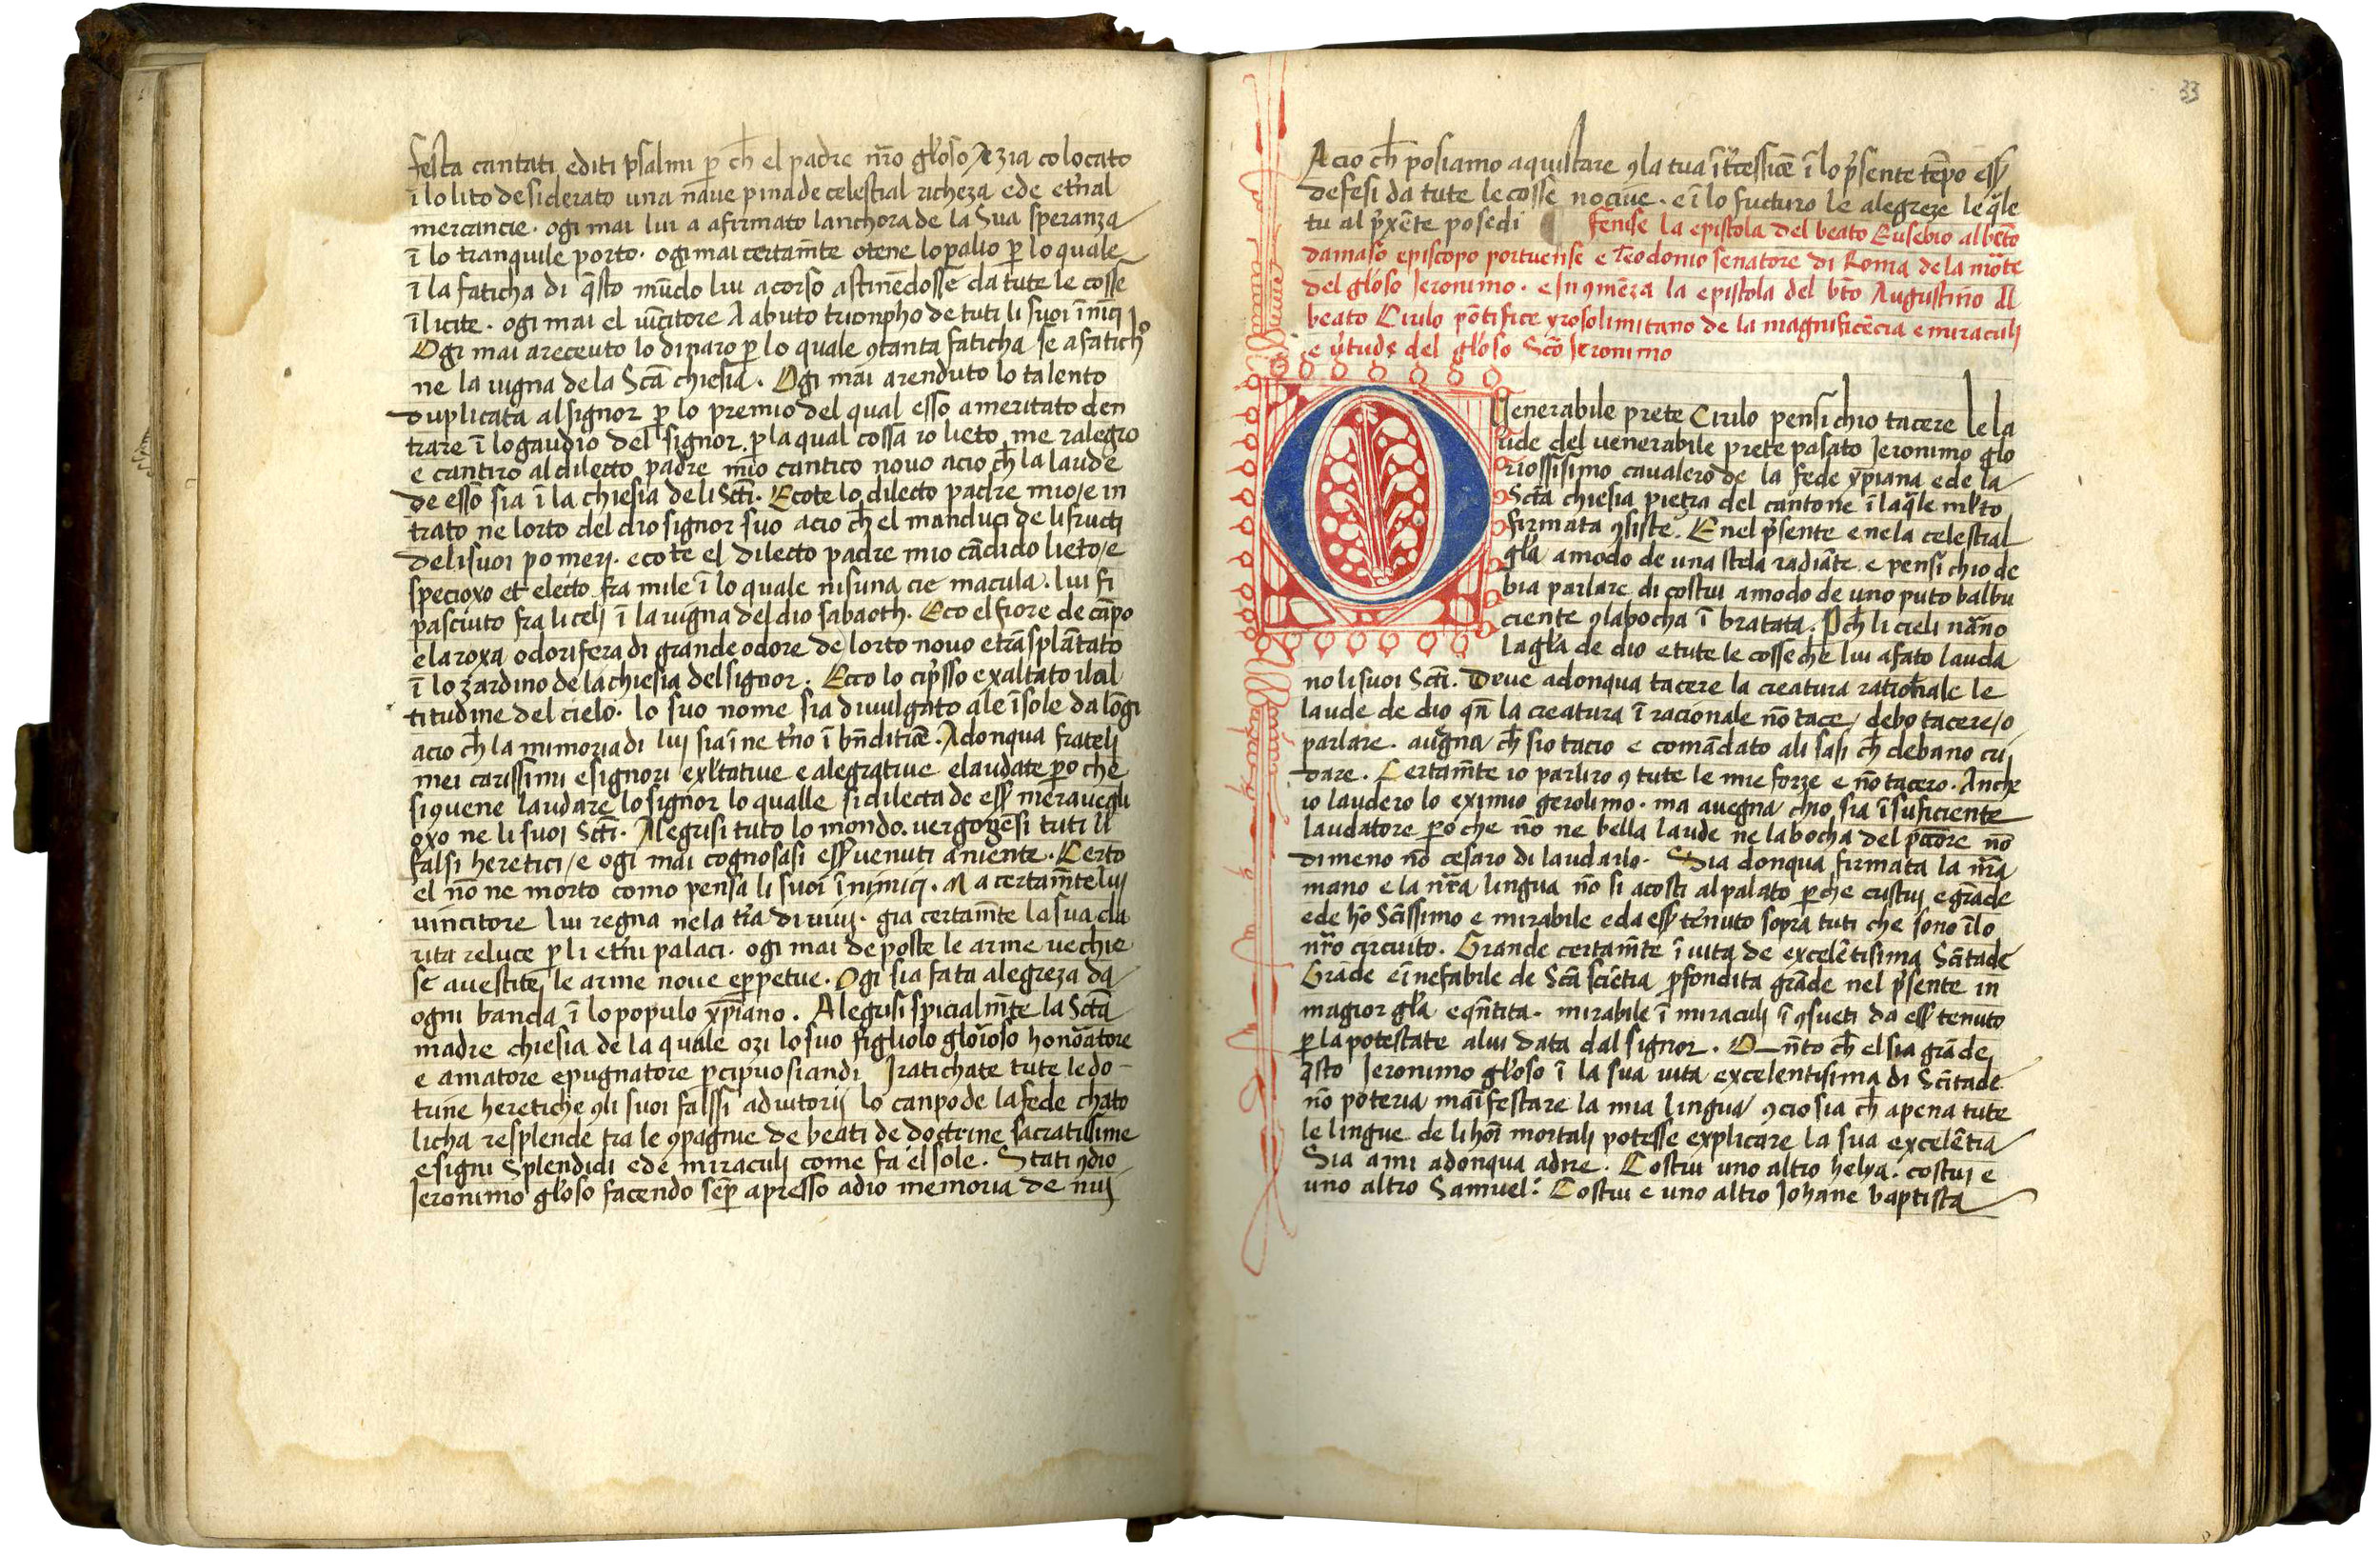 festa cantati editi psalmi p̱ ch̄ el padre nr̄o gl'oso e zia colocato
ī lo lito desiderato una naue pina de celestial richeza ede et'nal
mercancie · ogi mai lui a afirmato lanchora de la sua speranza
ī lo tranquile porto · ogi mai certam̄te otene lo palio p̱ lo quale
ī la faticha di q̄sto mūdo lui acorso astinēdosse da tute le cosse
īlicite · ogi mai el uīcitore A abuto trionpho de tuti li suoi īnīci
Ogi mai areceuto lo dinaro p̱ lo quale ꝯtanta faticha se afatichº
ne la uigna de la Scā chiesia . Ogi mai arenduto lo talento
duplicata al signor p̱ lo premio del qual esso ameritato den
trare ī lo gaudio del signor . p̱ la qual cossa io lieto me ralegro
e cantiro al dilecto padre mio cantico nouo acio ch̄ la laude
de esso sia ī la chiesia de li Sctī . Ecote lo dilecto padre mio / e in
trato ne lorto del dio signor suo acio ch̄ el manduci de li fructi
deli suoi pomerj . ecote el dilecto padre mio cādido lieto / e
specioxo et electo fra mile ī lo quale nisuna cie macula . lui fi
pasciuto fra li celj ī la uigna del dio sabaoth . Eco el fiore de cāpo
e la roxa odorifera di grande odore de lorto nouo e trāsplātato
ī lo zardino de la chiesia del signor . Ecco lo cip'sso exaltato il al
titudine del cielo . lo suo nome sia diuulgato ale īsole da lōgi
acio ch̄ la mimoria di luj sia ī ne t'no ī bn̄ditiōe . Adonqua fratelj
mei carissimi e signori exl'tatiue e alegratiue e laudate p̱o che
si ꝯuene laudare lo signor lo qualle si dilecta de ess' merauegli
oxo ne li suoi Sctī . Alegrisi tuto lo mondo . uergogēsi tuti li
falsi heretici / e ogi mai cognosasi ess' uenuti aniente . Certo
el nō ne morto como pensa li suoi īnimici . Ma certam̄te luj
uincitore lui regna nela t'ra di uiuj . gia certam̄te la sua cla
rita reluce p̱ li et'ni palaci . ogi mai deposte le arme uechie
se auestite le arme noue e p̱petue . Ogi sia fata alegreza da
ogni banda ī lo populo xp̄iano . Alegrisi spicialm̄te la Sctā
madre chiesia de la quale ozi lo suo figliolo glorioso honoratore
e amatore e pugnatore p̱cipuo siandi Iratichate tute le do
trine heretiche ꝯli suoi falssi aduitorij lo canpo de la fede chato
licha resplende tra le ꝯpagnie de beati de doctrine sacratissime
e signi splendidi ede miraculj come fa el sole . Stati ꝯdio
Ieronimo gl'oso facendo sēp̱ apresso adio memoria de nuj
33
Acio ch̄ posiamo aquistare ꝯla tua īt'cessiōe ī lo p'sente tēpo ess'
defesi da tute le cosse nociue . e ī lo futuro le alegreze le q̄le
tu al p'xēte posedi fenise la epistola del beato Eusebio al beto
damaso episcopo portuense e Teodonio senatore di Roma de la morte
del gl'oso Ieronimo . e In ꝯmēza la epistola del bt̄o Augustino Al
beato Cirulo pōtifice yrosolimitano de la magnificēcia e miraculj
e u'tude del gl'oso Scō Ieronimo
O Venerabile prete Cirulo pensi chio tacere le la
ude del uenerabile prete pasato Ieronimo glo
riossisimo caualero de la fede xp̄iana ede la
Sctā chiesia pietra del cantone ī la q̄le ml'to
firmata ꝯsiste . E nel p'sente e nela celestial
gl'a amodo de una stela radiāte e pensi chio de
bia parlare di costui amodo de uno puto balbu
ciente ꝯla bocha ībratata . P̱ch̄ li cieli narano
la gl'a de dio e tute le cosse che lui a fato lauda
no li suoi Sctī . Deue adonqua tacere la creatura rationale le
laude de dio qn̄ la creatura īracionale nō tace / debo tacere / o
parlare . augna ch̄ sio tacio e comādato ali sasi ch̄ debano cri
dare . Certam̄te io parliro ꝯ tute le mie forze e nō tacero . Anche
io laudero lo eximio gerolimo . ma auegna chio sia īsuficiente
laudatore p̱o che nō ne bella laude ne la bocha del pctōre nō
dimeno nō cesaro di laudarlo . Sia donqua firmata la nr̄a
mano e la nr̄a lingua nō si acosti al palato p̱che custuj e grāde
ede hō Scīssimo e mirabile eda ess' tenuto sopra tuti che sono ī lo
nr̄o circuito . Grande certam̄te ī uita de excelētisima Sātade
Grāde e īnefabile de Scā sciētia p̱fondita grāde nel p'sente in
magior gl'a e qn̄tita . mirabile ī miraculj īꝯsueti da ess' tenuto
p̱ la potestate a lui data dal signor . O-n̄to ch̄ el sia grāde
q̄sto Ieronimo gl'oso ī la sua uita excelentisima di Scītade
nō poteria māifestare la mia lingua ꝯcio sia ch̄ apena tute
le lingue de li hoī mortalj potesse explicare la sua excelētia
Sia ami adonqua adire . Costui uno altro helya . costuj e
uno altro Samuel . Costui e uno altro Iohane baptista